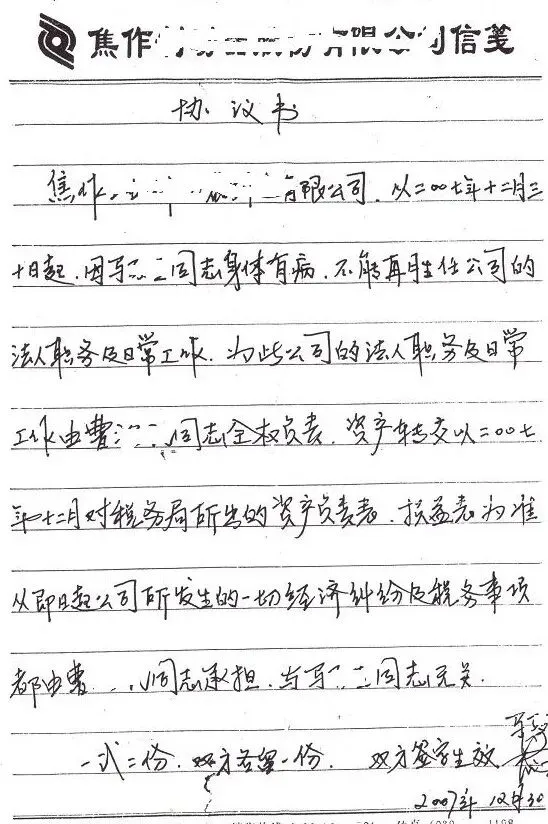 焦作 有限公司信笺
协议书
焦作 有限公司，从二00七年十二月三
十日起，因 同志身体有病，不能再胜任公司的
法人职务及日常工作，为此公司的法人职务及日常
工作由曹 同志全权负责，资产转交以二00七
年十二月对税务局所出的资产负责表，损益表为准
从即日起公司所发生的一切经济纠纷及税务事项
都由曹 同志承担，与 同志无关。
一式二份，双方各留一份，双方签字生效
2007年12月30